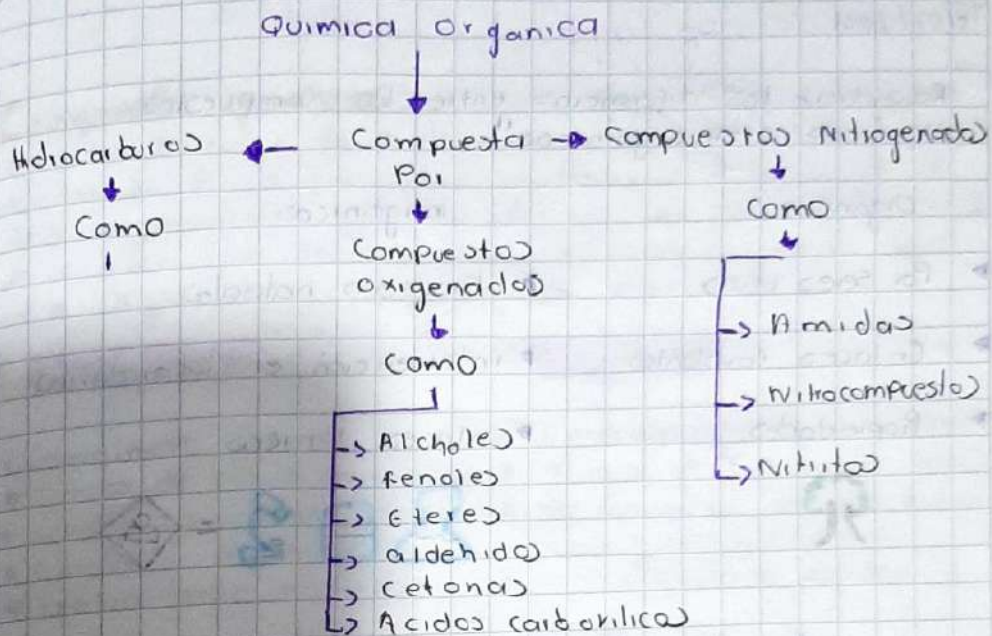 Quimica Organica
Hidrocarburos
Compuesta
Por
Compuestos Nitrogenados
Como
Compuestos
oxigenados
Como
Alcholes
fenoles
Eteres
aldehidos
cetonas
Acidos carboxilicos
Como
Amidas
Nitrocompuestos
Nitritos